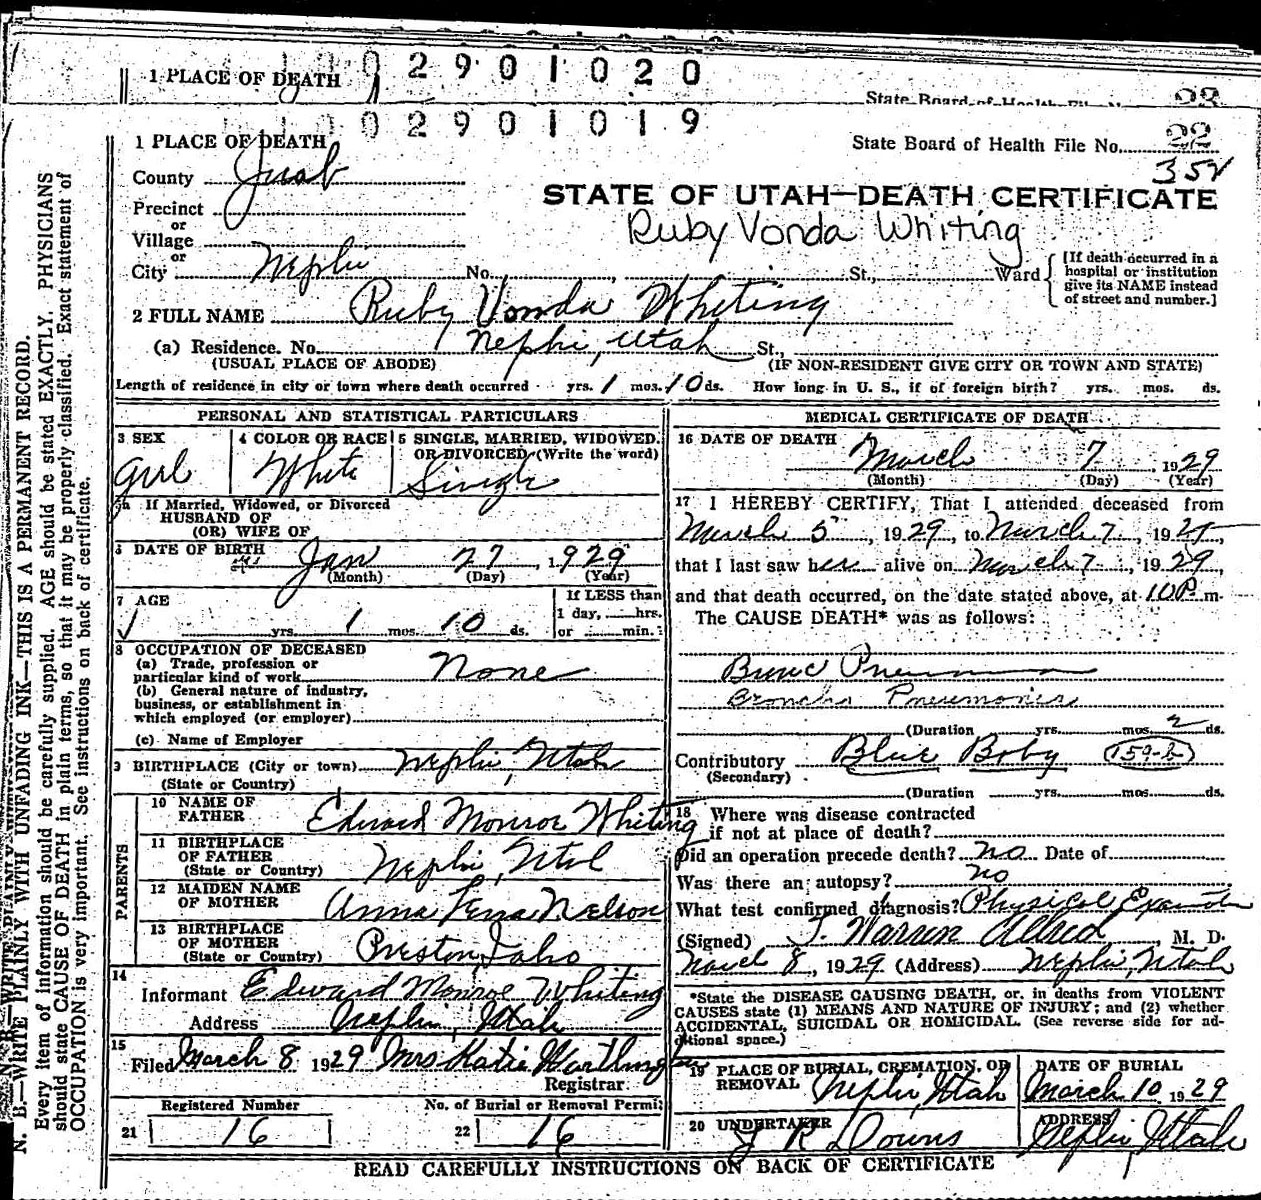 1 PLACE OF DEATH
2901020
State Board of Health File No. 23
2901019
1 PLACE OF DEATH
State Board of Health File No. 22
352
County Juab
STATE OF UTAH—DEATH CERTIFICATE
Precinct
Ruby Vonda Whiting
or
Village
or
City Nephi No. St., Ward
[If death occurred in a hospital or institution give its NAME instead of street and number.]
2 FULL NAME Ruby Vonda Whiting
(a) Residence. No. Nephi, Utah St.,
(USUAL PLACE OF ABODE) (IF NON-RESIDENT GIVE CITY OR TOWN AND STATE)
Length of residence in city or town where death occurred yrs. 1 mos. 10 ds. How long in U. S., if of foreign birth? yrs. mos. ds.
PERSONAL AND STATISTICAL PARTICULARS
3 SEX
Girl
4 COLOR OR RACE
White
5 SINGLE, MARRIED, WIDOWED, OR DIVORCED (Write the word)
Single
5a If Married, Widowed, or Divorced
HUSBAND OF
(OR) WIFE OF
6 DATE OF BIRTH Jan 27, 1929
(Month) (Day) (Year)
7 AGE
yrs. 1 mos. 10 ds.
If LESS than
1 day, hrs.
or min.
8 OCCUPATION OF DECEASED
(a) Trade, profession or
particular kind of work None
(b) General nature of industry,
business, or establishment in
which employed (or employer)
(c) Name of Employer
9 BIRTHPLACE (City or town) Nephi, Utah
(State or Country)
PARENTS
10 NAME OF FATHER Edward Monroe Whiting
11 BIRTHPLACE OF FATHER (State or Country) Nephi, Utah
12 MAIDEN NAME OF MOTHER Anna Lena Nelson
13 BIRTHPLACE OF MOTHER (State or Country) Preston, Idaho
14
Informant Edward Monroe Whiting
Address Nephi, Utah
15
Filed March 8 1929 Mrs Katie Worthington
Registrar
Registered Number No. of Burial or Removal Permit
21 16 22 16
MEDICAL CERTIFICATE OF DEATH
16 DATE OF DEATH
March 7 1929
(Month) (Day) (Year)
17 I HEREBY CERTIFY, That I attended deceased from
March 5, 1929, to March 7, 1929,
that I last saw her alive on March 7, 1929,
and that death occurred, on the date stated above, at 10 P. m.
The CAUSE DEATH* was as follows:
Bronchs Pneumonia
(Duration yrs. mos. 2 ds.
Contributory Blue Boby 159-b
(Secondary)
(Duration yrs. mos. ds.
18 Where was disease contracted
if not at place of death?
Did an operation precede death? no Date of
Was there an autopsy? no
What test confirmed diagnosis? Physical
(Signed) J. Warren Allred, M. D.
March 8, 1929 (Address) Nephi, Utah
*State the DISEASE CAUSING DEATH, or, in deaths from VIOLENT
CAUSES state (1) MEANS AND NATURE OF INJURY; and (2) whether
ACCIDENTAL, SUICIDAL OR HOMICIDAL. (See reverse side for ad-
ditional space.)
19 PLACE OF BURIAL, CREMATION, OR REMOVAL
Nephi, Utah
DATE OF BURIAL
March 10 1929
20 UNDERTAKER
J R Downs
ADDRESS
Nephi, Utah
READ CAREFULLY INSTRUCTIONS ON BACK OF CERTIFICATE
N. B.—WRITE PLAINLY WITH UNFADING INK—THIS IS A PERMANENT RECORD.
Every item of information should be carefully supplied. AGE should be stated EXACTLY. PHYSICIANS
should state CAUSE OF DEATH in plain terms, so that it may be properly classified. Exact statement of
OCCUPATION is very important. See instructions on back of certificate.